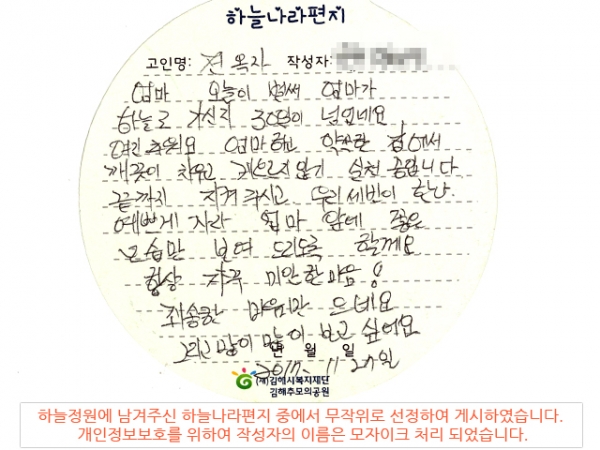 하늘나라편지
고인명: 전옥자 작성자:
엄마 오늘이 벌써 엄마가
하늘로 가신지 30일이 넘었네요
여긴 추워요 엄마하고 약속한 집에서
깨끗이 치우고 게으르지않기 실천 중입니다
끝까지 지켜주시고 우리세빈이 하난
예쁘게 자라 엄마 앞에 좋은
모습만 보여 드리도록 할께요
항상 자꾸 미안한마음
죄송한 마음만 드네요
많이 많이 보고 싶어요
년 월 일
2017. 11 27일
(재)김해시복지재단
김해추모의공원
하늘정원에 남겨주신 하늘나라편지 중에서 무작위로 선정하여 게시하였습니다.
개인정보보호를 위하여 작성자의 이름은 모자이크 처리 되었습니다.